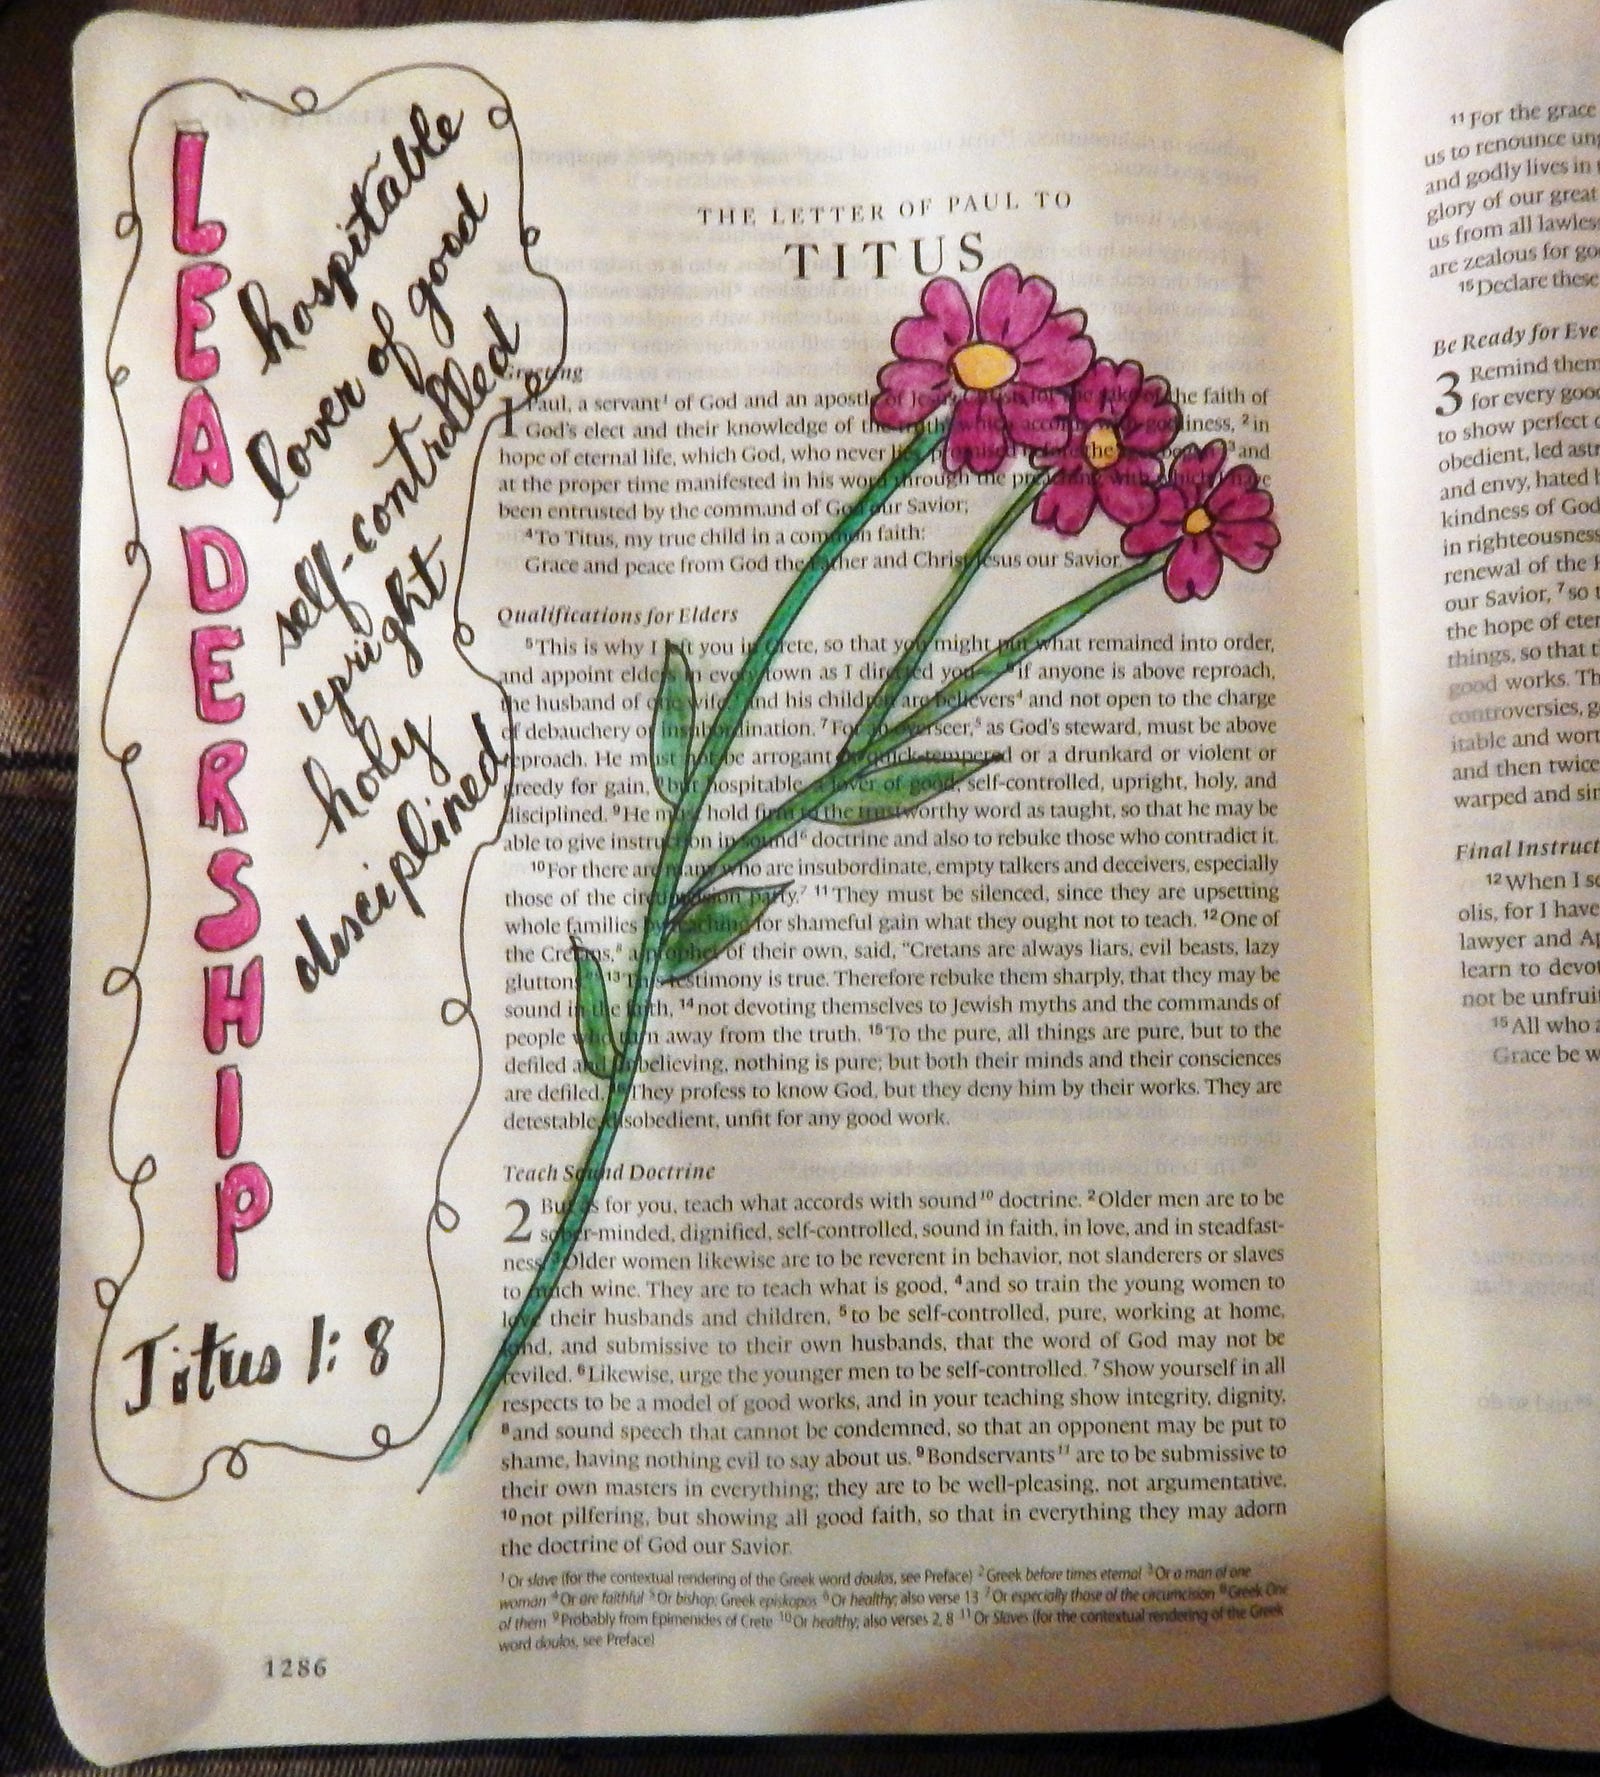 LEADERSHIP
hospitable
lover of good
self-controlled
upright
holy
disciplined
Titus 1:8
THE LETTER OF PAUL TO
TITUS
Greeting
1 Paul, a servant¹ of God and an apostle of Jesus Christ, for the sake of the faith of
God's elect and their knowledge of the truth, which accords with godliness, ²in
hope of eternal life, which God, who never lies, promised before the ages began²³and
at the proper time manifested in his word through the preaching with which I have
been entrusted by the command of God our Savior;
⁴To Titus, my true child in a common faith:
Grace and peace from God the Father and Christ Jesus our Savior.
Qualifications for Elders
⁵This is why I left you in Crete, so that you might put what remained into order,
and appoint elders in every town as I directed you— ⁶if anyone is above reproach,
the husband of one wife,³ and his children are believers⁴ and not open to the charge
of debauchery or insubordination. ⁷For an overseer,⁵ as God's steward, must be above
reproach. He must not be arrogant or quick-tempered or a drunkard or violent or
greedy for gain, ⁸but hospitable, a lover of good, self-controlled, upright, holy, and
disciplined. ⁹He must hold firm to the trustworthy word as taught, so that he may be
able to give instruction in sound⁶ doctrine and also to rebuke those who contradict it.
¹⁰For there are many who are insubordinate, empty talkers and deceivers, especially
those of the circumcision party.⁷ ¹¹They must be silenced, since they are upsetting
whole families by teaching for shameful gain what they ought not to teach. ¹²One of
the Cretans,⁸ a prophet of their own, said, "Cretans are always liars, evil beasts, lazy
gluttons."⁹ ¹³This testimony is true. Therefore rebuke them sharply, that they may be
sound in the faith, ¹⁴not devoting themselves to Jewish myths and the commands of
people who turn away from the truth. ¹⁵To the pure, all things are pure, but to the
defiled and unbelieving, nothing is pure; but both their minds and their consciences
are defiled. ¹⁶They profess to know God, but they deny him by their works. They are
detestable, disobedient, unfit for any good work.
Teach Sound Doctrine
2 But as for you, teach what accords with sound¹⁰ doctrine. ²Older men are to be
sober-minded, dignified, self-controlled, sound in faith, in love, and in steadfast-
ness. ³Older women likewise are to be reverent in behavior, not slanderers or slaves
to much wine. They are to teach what is good, ⁴and so train the young women to
love their husbands and children, ⁵to be self-controlled, pure, working at home,
kind, and submissive to their own husbands, that the word of God may not be
reviled. ⁶Likewise, urge the younger men to be self-controlled. ⁷Show yourself in all
respects to be a model of good works, and in your teaching show integrity, dignity,
⁸and sound speech that cannot be condemned, so that an opponent may be put to
shame, having nothing evil to say about us. ⁹Bondservants¹¹ are to be submissive to
their own masters in everything; they are to be well-pleasing, not argumentative,
¹⁰not pilfering, but showing all good faith, so that in everything they may adorn
the doctrine of God our Savior.
¹Or slave (for the contextual rendering of the Greek word doulos, see Preface) ²Greek before times eternal ³Or a man of one
woman ⁴Or are faithful ⁵Or bishop; Greek episkopos ⁶Or healthy; also verse 13 ⁷Or especially those of the circumcision ⁸Greek One
of them ⁹Probably from Epimenides of Crete ¹⁰Or healthy; also verses 2, 8 ¹¹Or Slaves (for the contextual rendering of the Greek
word doulos, see Preface)
1286
¹¹For the grace
us to renounce
and godly lives in
glory of our great
us from all
are zealous for
¹⁵Declare these
Be Ready for
3 Remind them
for every good
to show perfect
obedient, led
and envy, hated
kindness of God
in righteousness
renewal of the
our Savior, ⁷so
the hope of
things, so that
good works.
controversies,
itable and
and then twice
warped and
Final
¹²When I
olis, for I have
lawyer and
learn to
not be
¹⁵All who
Grace be